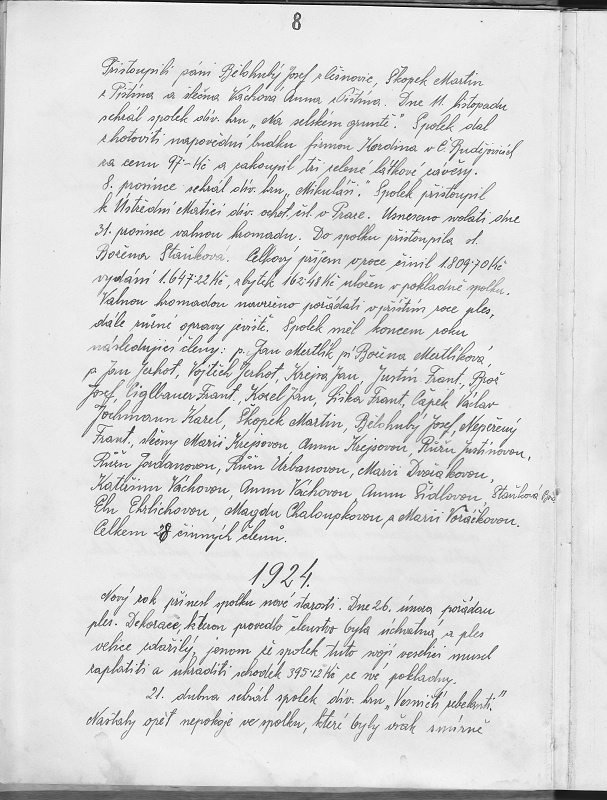 8
Přistoupili páni Bělohubý Josef z Češnovic, Skopek Martin
z Pištína a slečna Váchová Anna z Pištína. Dne 11. listopadu
sehrál spolek div. hru „Na selském gruntě.“ Spolek dal
zhotoviti napovědní budku firmou Kordina v Č. Budějovicích
za cenu 97 Kč a zakoupil tři zelené látkové závěsy.
8. prosince sehrál div. hru „Mikuláši.“ Spolek přistoupil
k Ústřední Matici div. ochot. čsl. v Praze. Usneseno svolati dne
31. prosince valnou hromadu. Do spolku přistoupila sl.
Božena Staňková. Celkový příjem v roce činil 1.809·70 Kč
vydání 1.647·22 Kč, zbytek 162·48 Kč uložen v pokladně spolku.
Valnou hromadou navrženo pořádati v příštím roce ples,
dále různé opravy jeviště. Spolek měl koncem roku
následující členy: p. Jan Mertlík pí Božena Mertlíková
p Jan Jerhot, Vojtěch Jerhot, Krejsa Jan, Justin Frant., Brož
Josef, Ciglbauer Frant., Kozel Jan, Liška Frant., Čapek Václav
Jochmann Karel, Skopek Martin, Bělohubý Josef, Nepřený
Frant., slečny Marii Krejsovou Annu Krejsovou, Růžu Justinovou,
Růžu Jordanovou, Růžu Urbanovou, Marii Dvořákovou,
Kateřinu Váchovou, Annu Váchovou Annu Šídlovou, Staňková Bož.
Elu Ehrlichovou, Magdu Chaloupkovou a Marii Voráčkovou.
Celkem 28 činných členů.
1924.
Nový rok přinesl spolku nové starosti. Dne 26. února pořádán
ples. Dekorace, kterou provedlo členstvo byla úchvatná, a ples
velice zdařilý, jenom že spolek tuto svoji veselici musel
zaplatiti a uhraditi schodek 395·12 Kč ze své pokladny.
21. dubna sehrál spolek div. hru „Vesničtí rebelanti.“
Nastaly opět nepokoje ve spolku, které byly však smírně